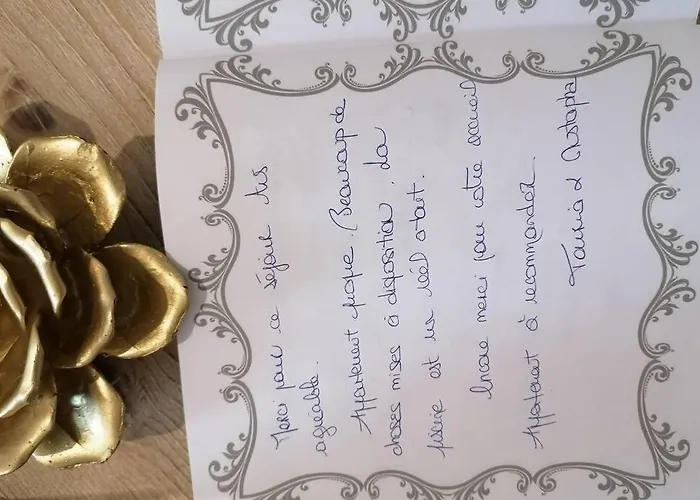 Merci pour ce séjour très
agréable.
Appartement propre. Beaucoup de
choses mises à disposition, La
piscine est un réél atout.
Encore merci pour votre accueil
Appartement à recommander.
&